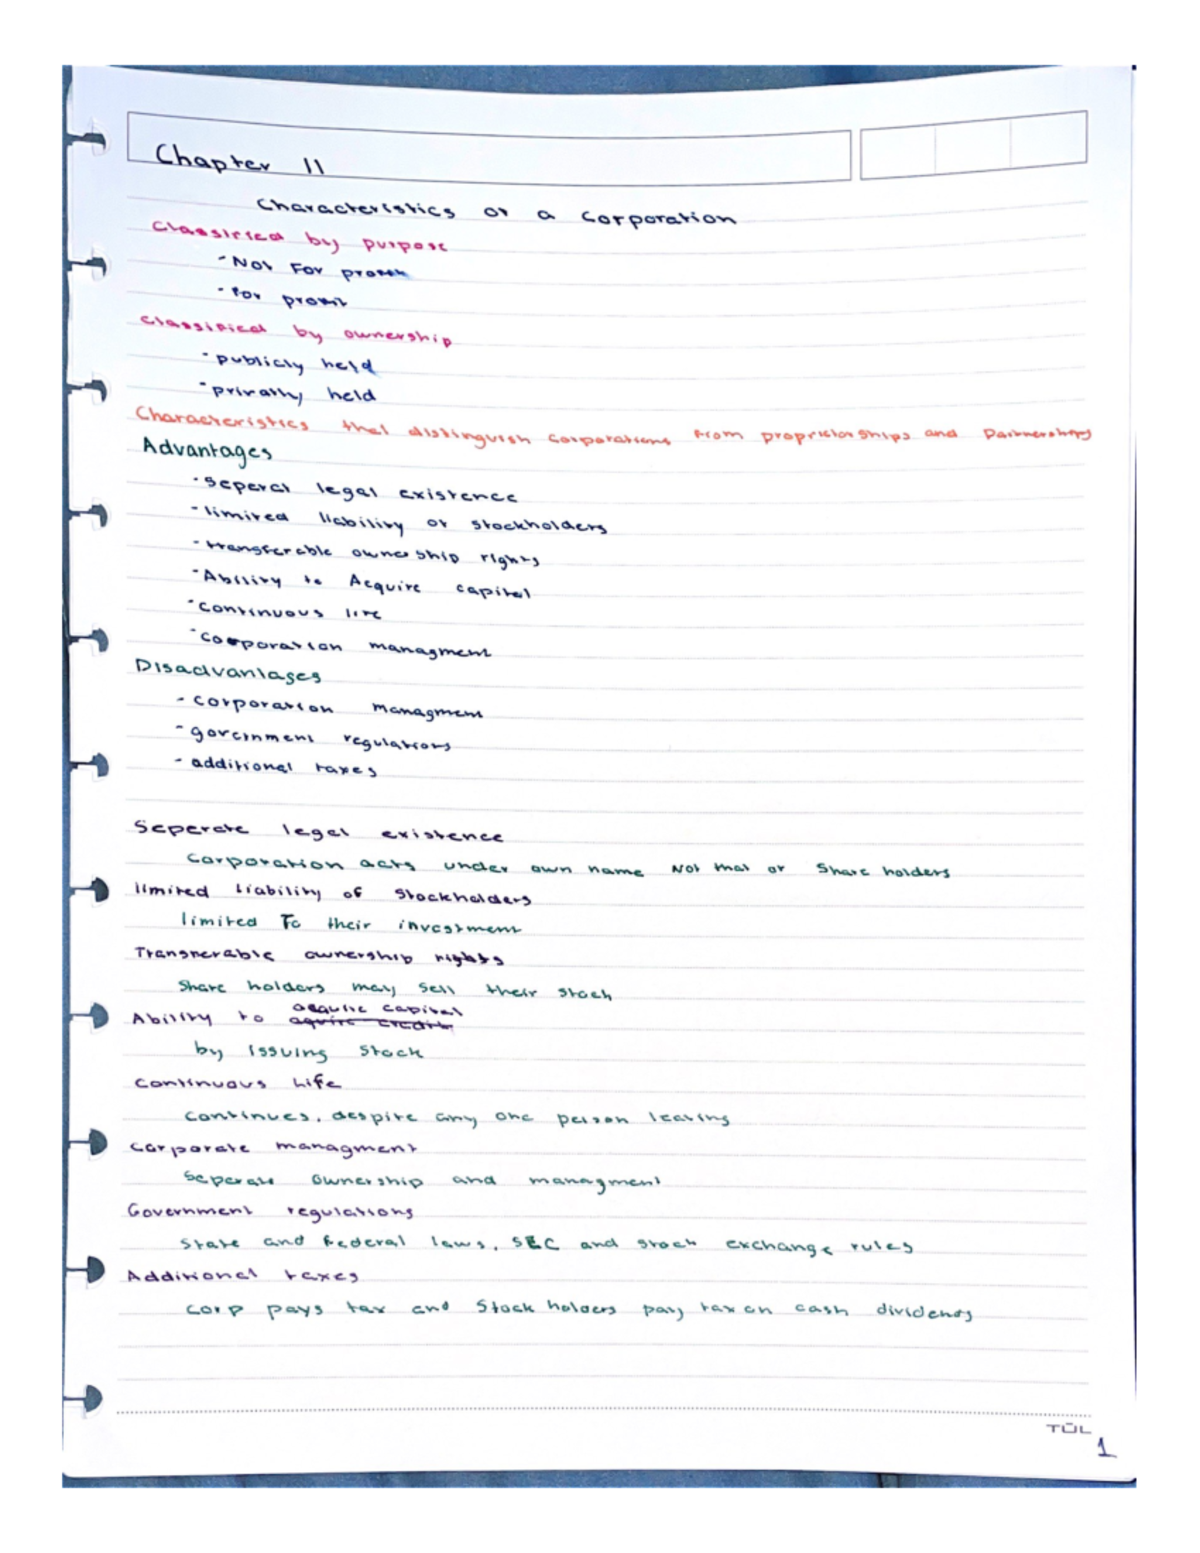 Chapter 11
Characteristics of a Corporation
Classified by purpose
- Not For profit
- for profit
Classified by ownership
- publicly held
- privatly held
Characteristics that distinguish corporations from propriciorships and Partnerships
Advantages
- Seperat legal existence
- limited liability of stockholders
- transferable ownership rights
- Ability to Acquire capital
- continuous life
- corporation managment
Disadvantages
- corporation managment
- government regulations
- additional taxes
Seperate legal existence
Corporation acts under own name Not that of Share holders
limited Liability of Stockholders
limited To their investment
Transferable ownership rights
Share holders may sell their stock
Ability to aquire credit acquire capital
by issuing stock
Continuous Life
Continues, despite any one person leaving
Corporate managment
Seperate ownership and managment
Government regulations
State and federal laws, SEC and stock exchange rules
Additional taxes
Corp pays tax and Stock holders pay tax on cash dividends
TUL
1